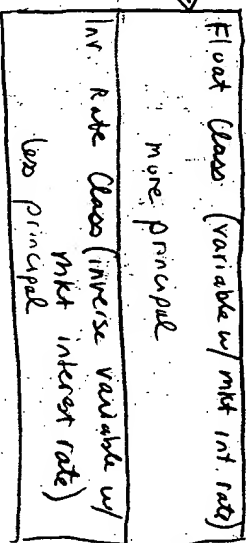 Float Class (variable w/ mkt int. rate)
more principal
Inv. Rate Class (inverse variable w/
mkt interest rate)
less principal